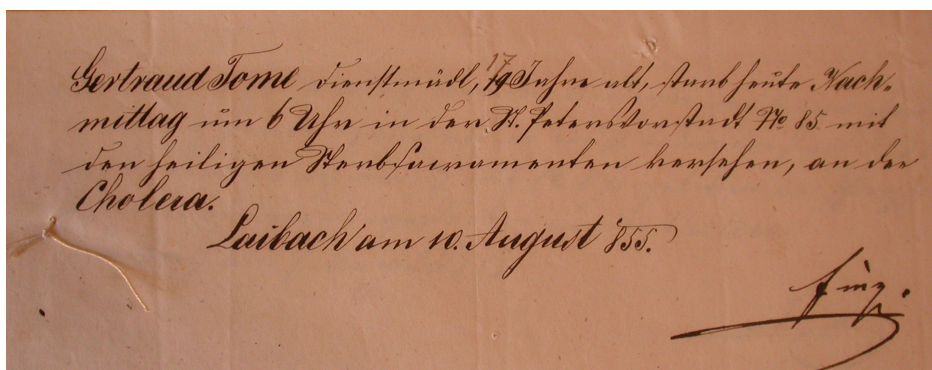 17
Gertraud Tome Dienstmädl, 19 Jahre alt, starb heute Nach-
mittag um 6 Uhr in der St. Petersvorstadt No 85 mit
den heiligen Sterbsacramenten versehen, an der
Cholera.
Laibach am 10. August 855.